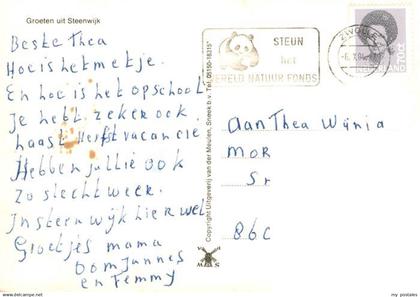 Groeten uit Steenwijk
Beste Thea
Hoe is het metje.
En hoe is het opschool
Je hebt zeker ook
haast herfstvacancie
Hebben jullie ook
Zo slecht weer.
In steenwijk hier wel
Groetjes mama
oom Jannes
en Femmy
Copyright Uitgeverij van der Meulen, Sneek b.v. Tel. 05150-18315*
STEUN
het
WERELD NATUUR FONDS
ZWOLLE
NEDERLAND 70ct
aan Thea Wijnia
MOR
Sr
86c